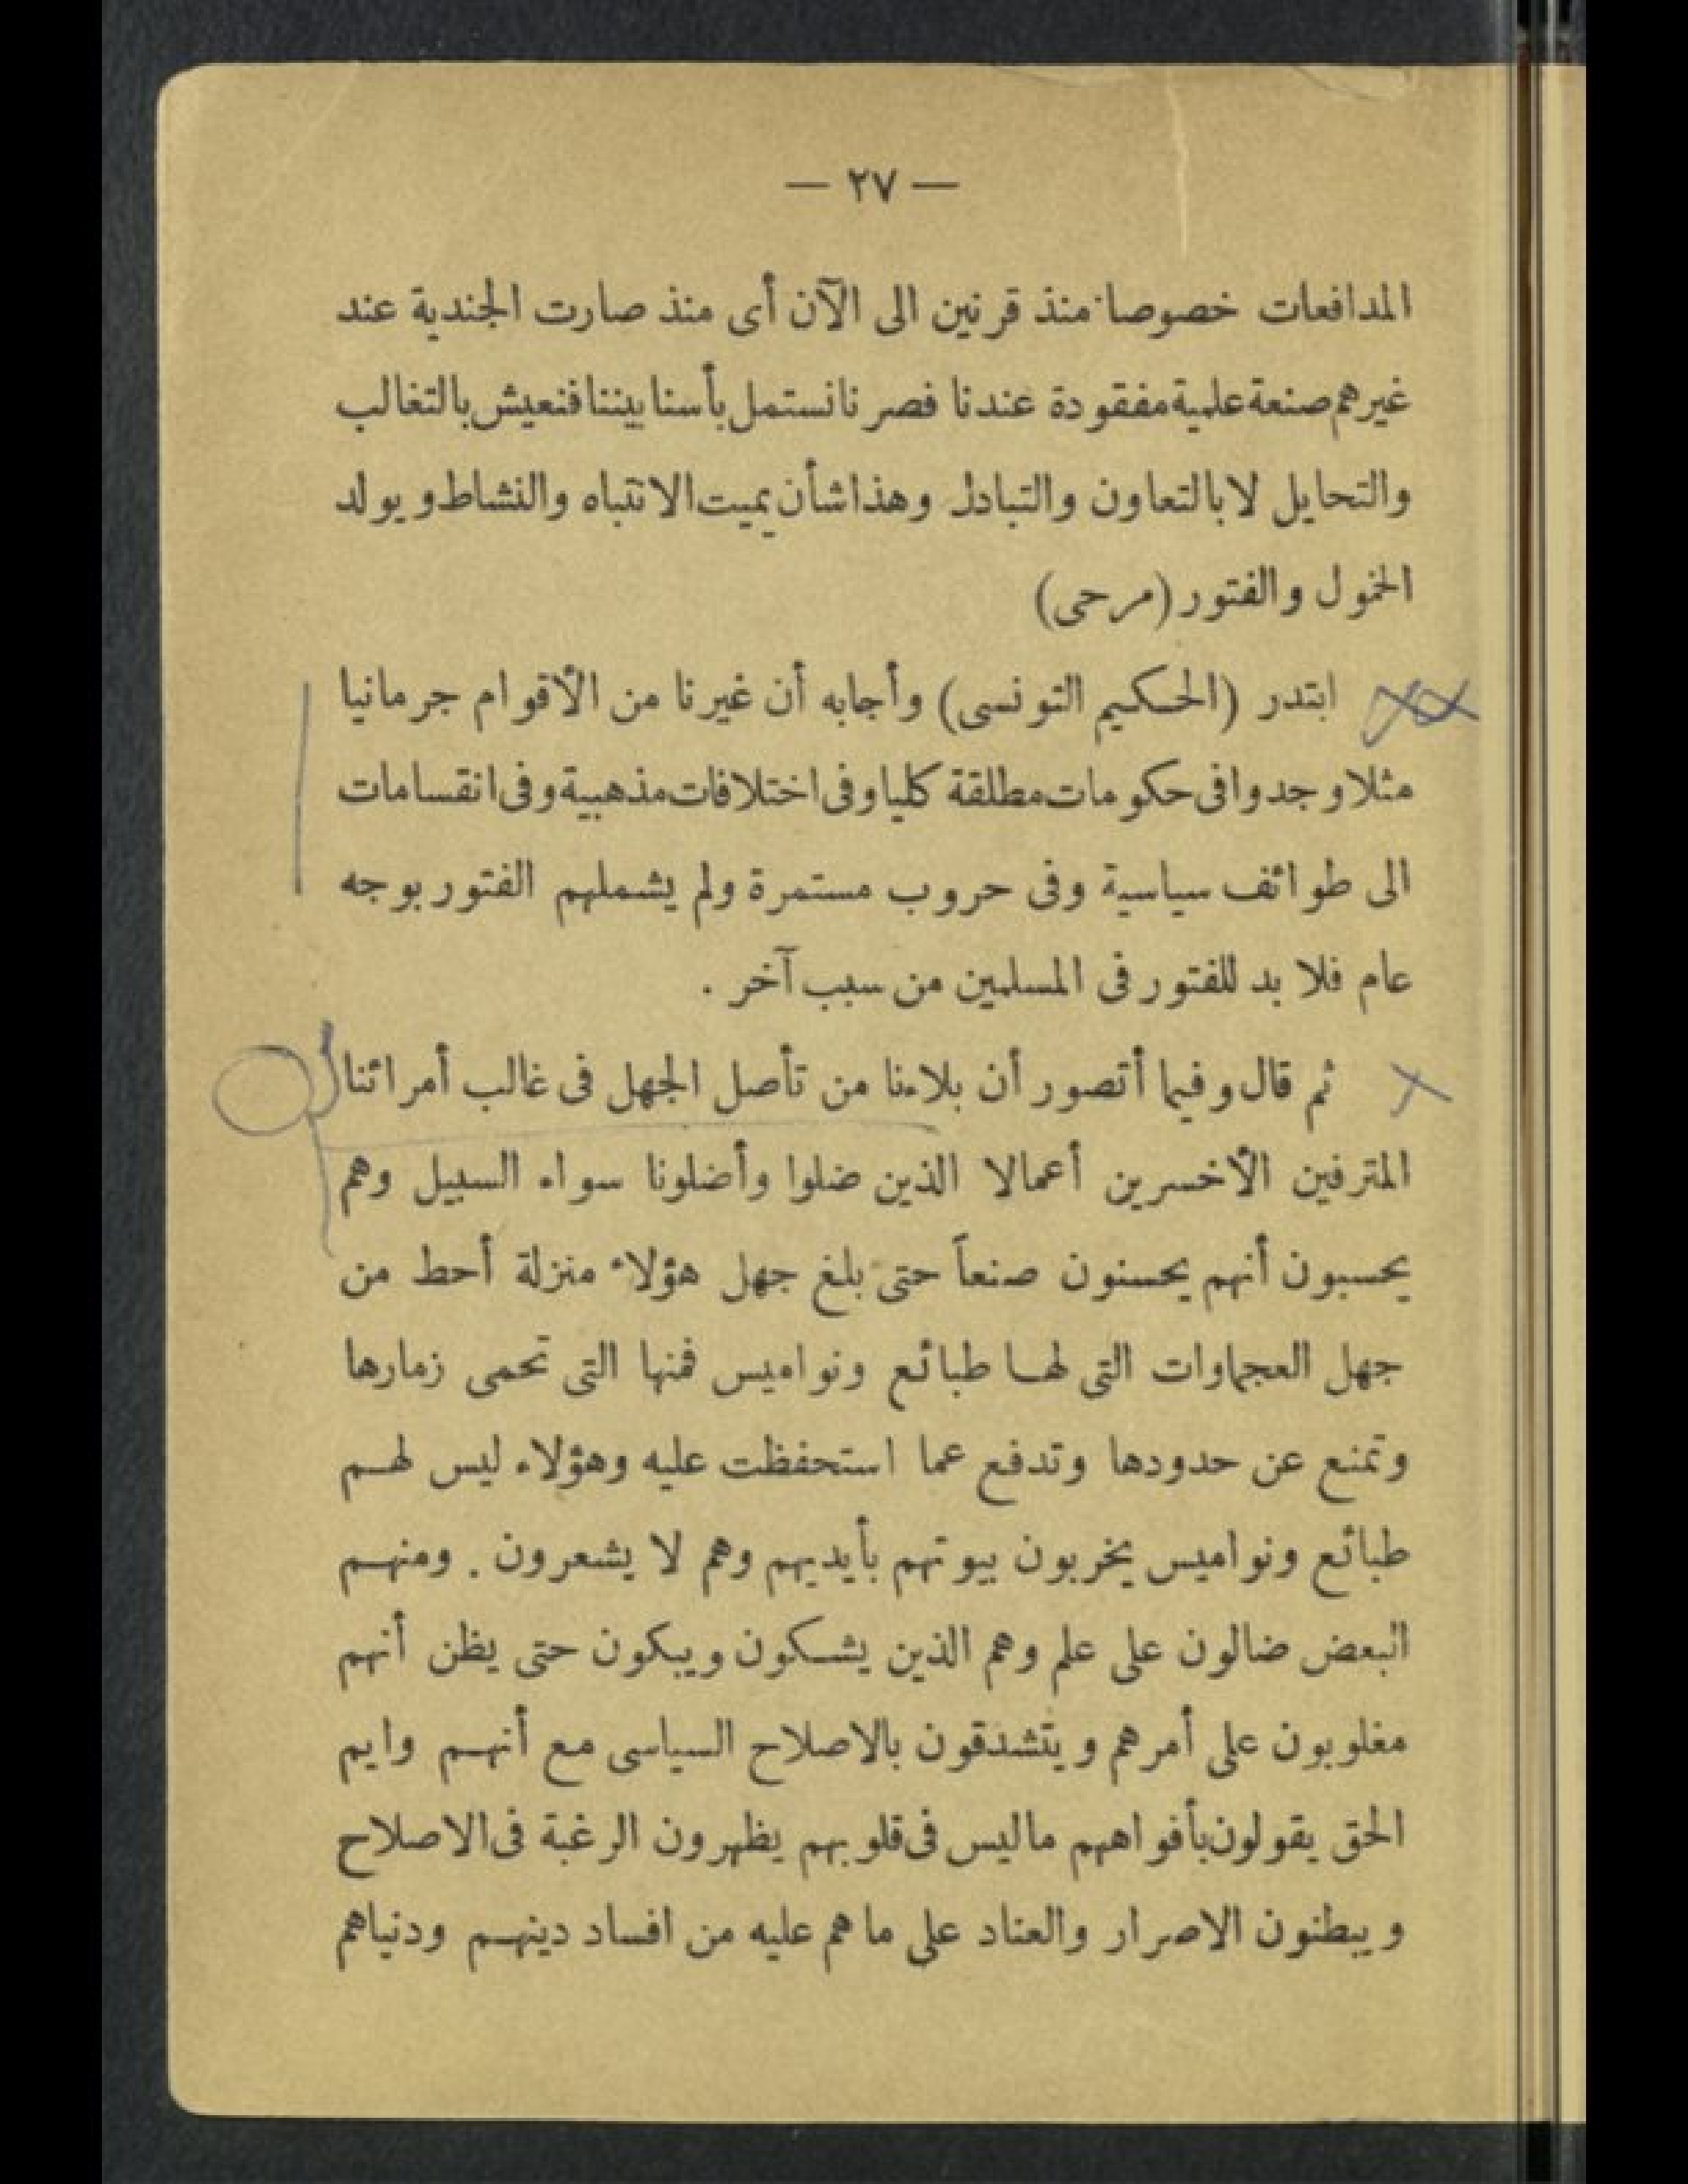 — ٢٧ —
المدافعات خصوصا منذ قرنين الى الآن أى منذ صارت الجندية عند
غيرهم صنعة علمية مفقودة عندنا فصرنا نستمل بأسنا بيننا فنعيش بالتغالب
والتحايل لا بالتعاون والتبادل وهذا شأن يميت الانتباه والنشاط ويولد
الخمول والفتور (مرحى)
ابتدر (الحكيم التونسى) وأجابه أن غيرنا من الأقوام جرمانيا
مثلا وجدوا فى حكومات مطلقة كليا وفى اختلافات مذهبية وفى انقسامات
الى طوائف سياسية وفى حروب مستمرة ولم يشملهم الفتور بوجه
عام فلا بد للفتور فى المسلمين من سبب آخر .
ثم قال وفيما أتصور أن بلاءنا من تأصل الجهل فى غالب أمرائنا
المترفين الأخسرين أعمالا الذين ضلوا وأضلونا سواء السبيل وهم
يحسبون أنهم يحسنون صنعاً حتى بلغ جهل هؤلاء منزلة أحط من
جهل العجماوات التى لها طبائع ونواميس فمنها التى تحمى زمارها
وتمنع عن حدودها وتدفع عما استحفظت عليه وهؤلاء ليس لهم
طبائع ونواميس يخربون بيوتهم بأيديهم وهم لا يشعرون . ومنهم
البعض ضالون على علم وهم الذين يشكون ويبكون حتى يظن أنهم
مغلوبون على أمرهم ويتشدقون بالاصلاح السياسى مع أنهم وايم
الحق يقولون بأفواههم ماليس فى قلوبهم يظهرون الرغبة فى الاصلاح
ويبطنون الاصرار والعناد على ما هم عليه من افساد دينهم ودنياهم